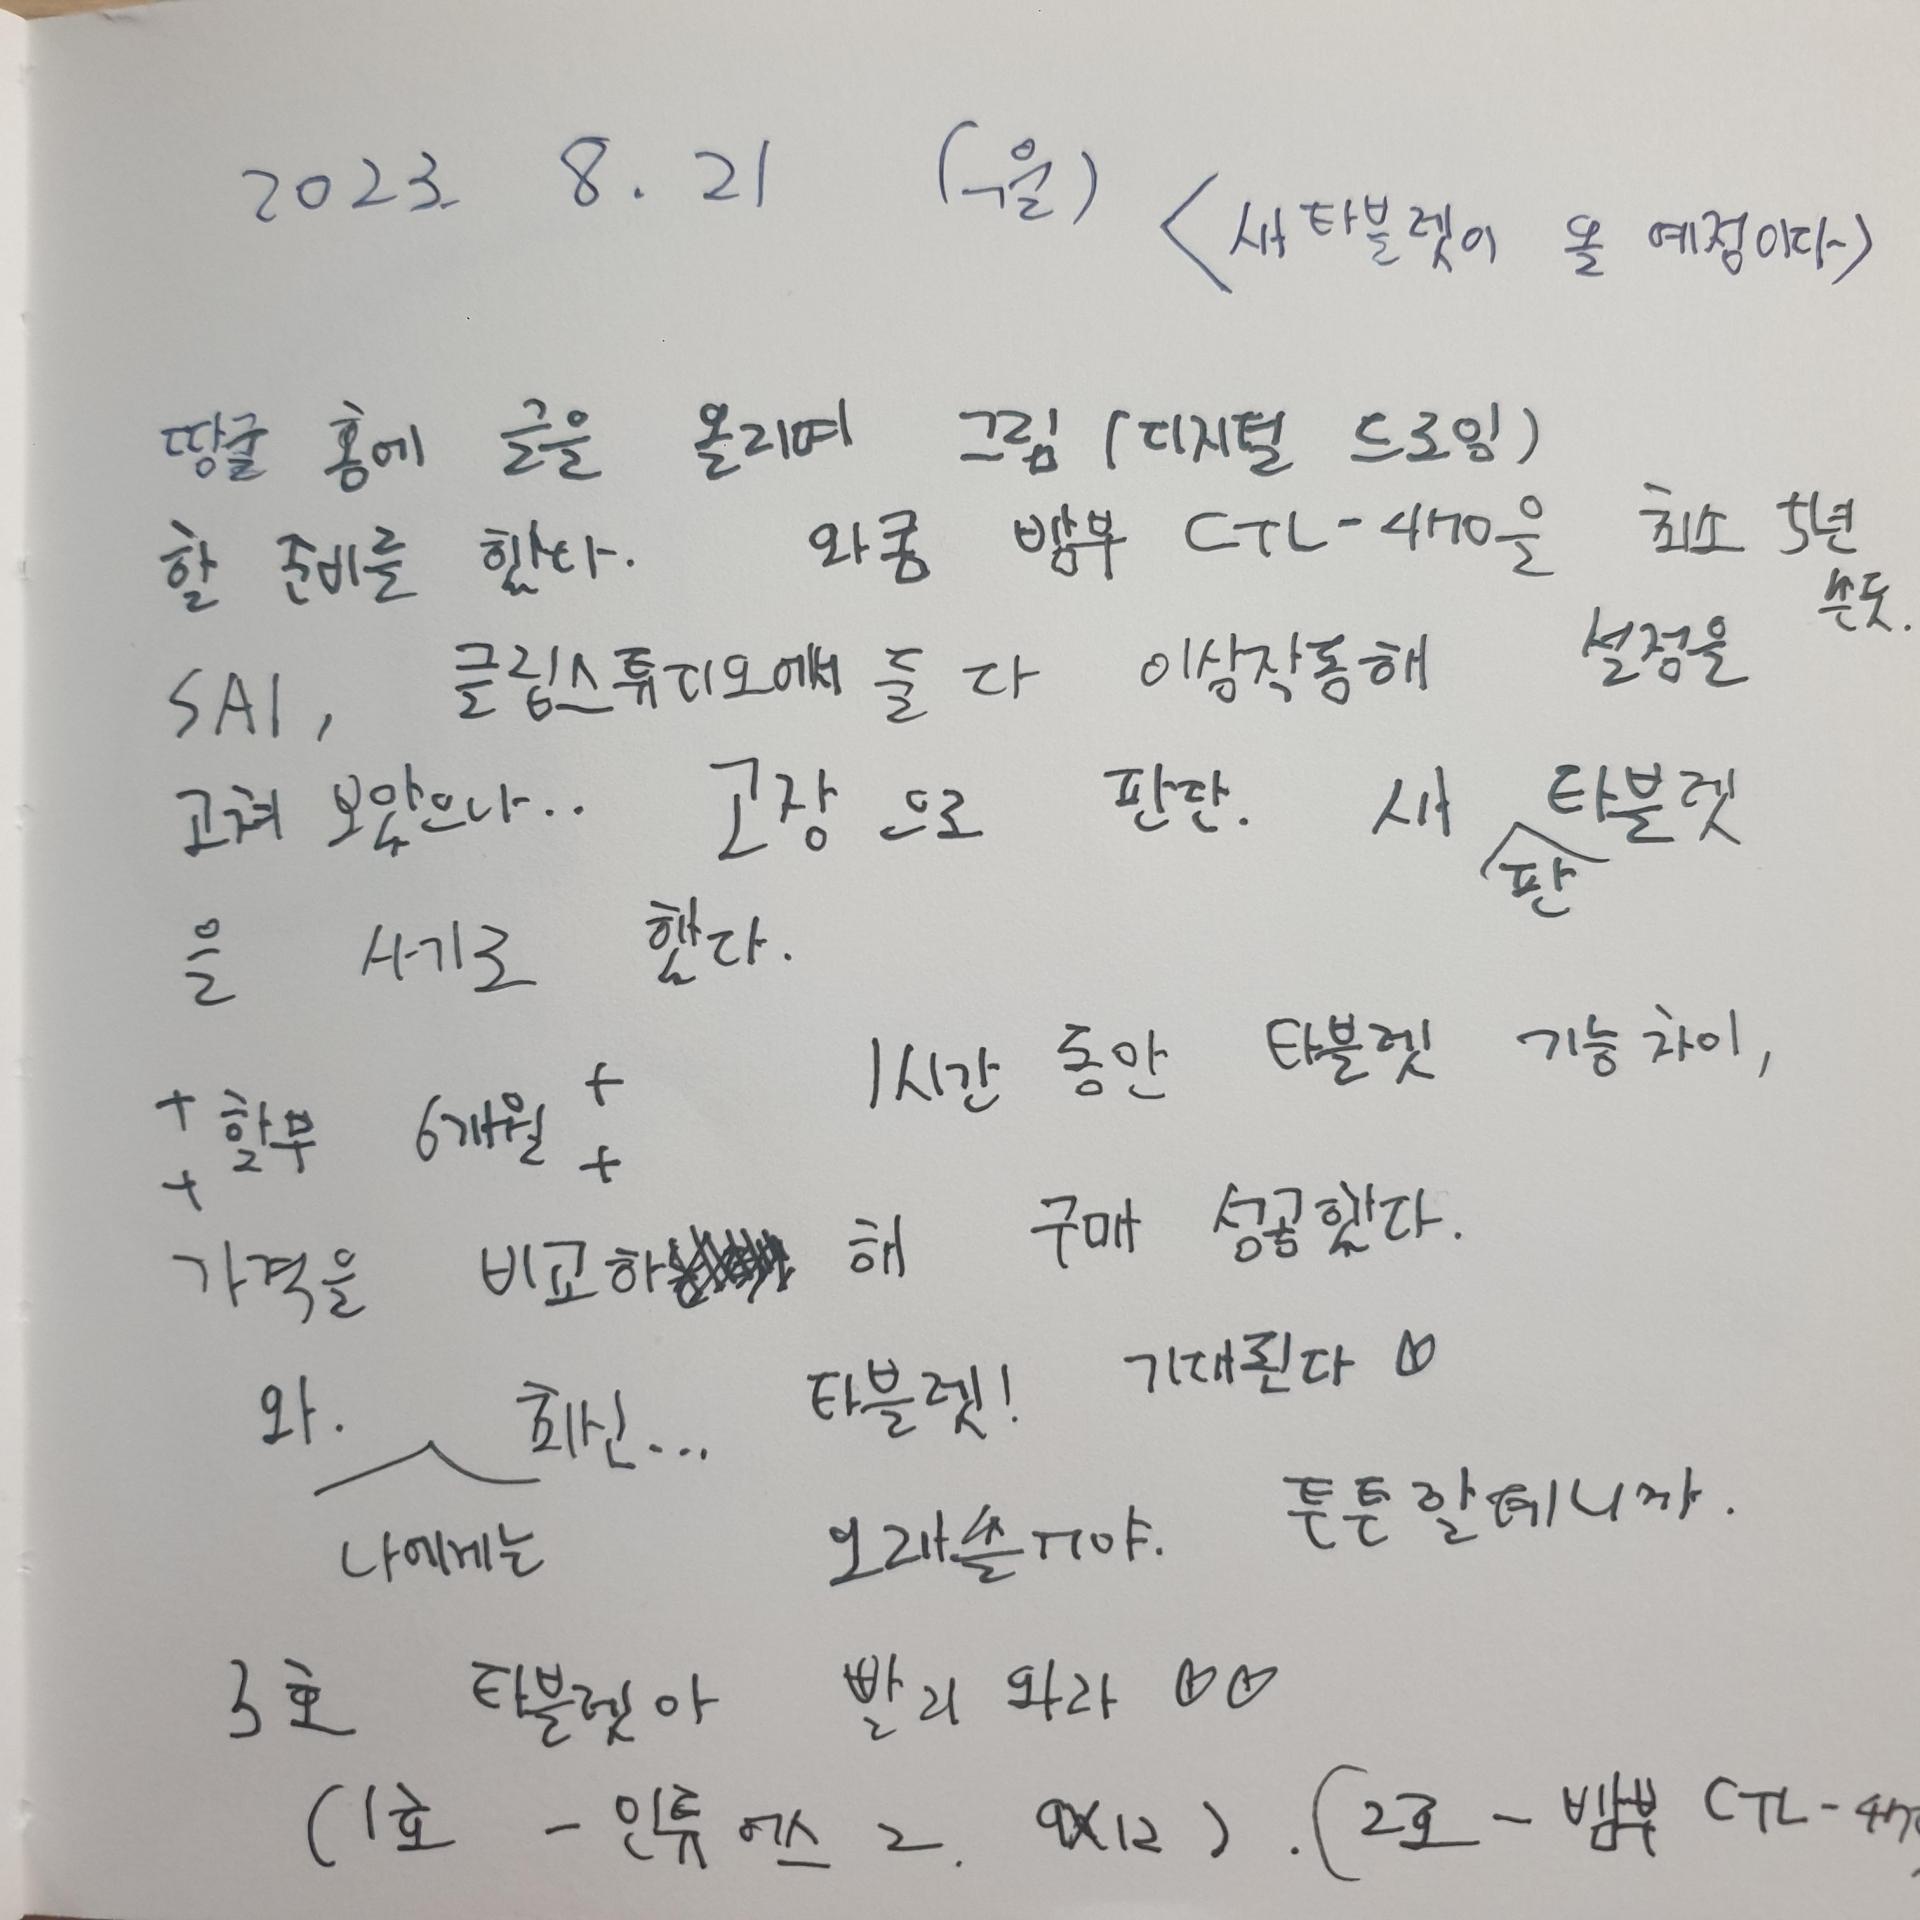 2023. 8. 21 (월) <새 타블렛이 올 예정이다~>
땅굴 홈에 글을 올리며 그림 (디지털 드로잉)
할 준비를 했다. 와콤 뱀부 CTL-470을 최소 5년
쓴듯.
SAI, 클립스튜디오에서 둘 다 이상작동해 설정을
고쳐 보았으나.. 고장으로 판단. 새 타블렛
판
을 사기로 했다.
1시간 동안 타블렛 기능 차이,
+ 할부 6개월 +
+ +
가격을 비교하 해 구매 성공했다.
와. 최신... 타블렛! 기대된다 ♡
나에게는 오래쓸거야. 튼튼할테니까.
3호 타블렛아 빨리 와라 ♡♡
(1호 - 인튜어스 2. 9X12). (2호 - 뱀부 CTL-470